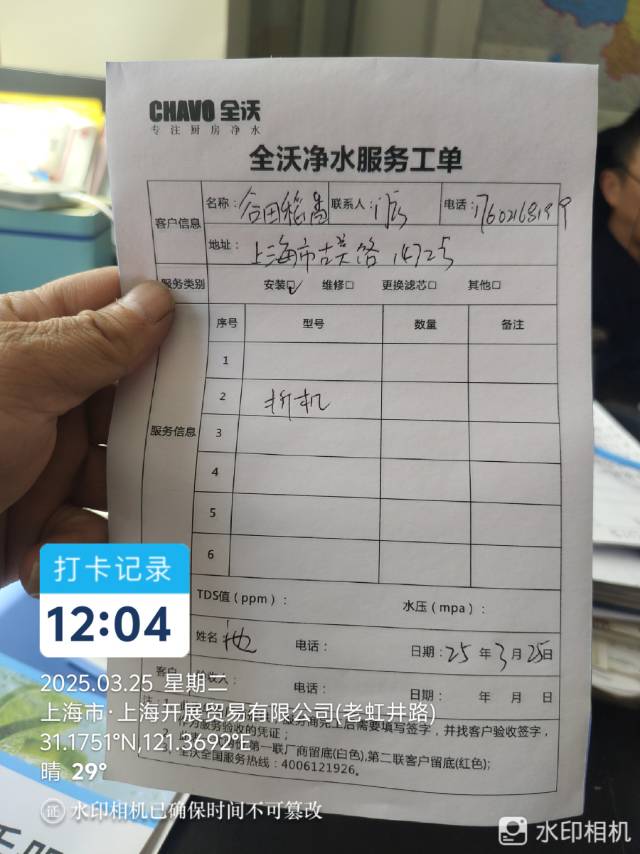 CHAVO 全沃
专注厨房净水
全沃净水服务工单
客户信息
名称：合田稻 联系人： 电话：
地址：上海市古美路1472号
服务类别 安装☑ 维修□ 更换滤芯□ 其他□
服务信息
序号 型号 数量 备注
1
2 拆机
3
4
5
6
TDS值（ppm）： 水压（mpa）：
姓名 电话： 日期：25年3月25日
客户 验收人： 电话： 日期： 年 月 日
完工后需要填写签字，并找客户验收签字，
作为服务验收的凭证；
第一联厂商留底(白色),第二联客户留底(红色);
全沃全国服务热线：4006121926.
打卡记录
12:04
2025.03.25 星期二
上海市·上海开展贸易有限公司(老虹井路)
31.1751°N,121.3692°E
晴 29°
证 水印相机已确保时间不可篡改
水印相机